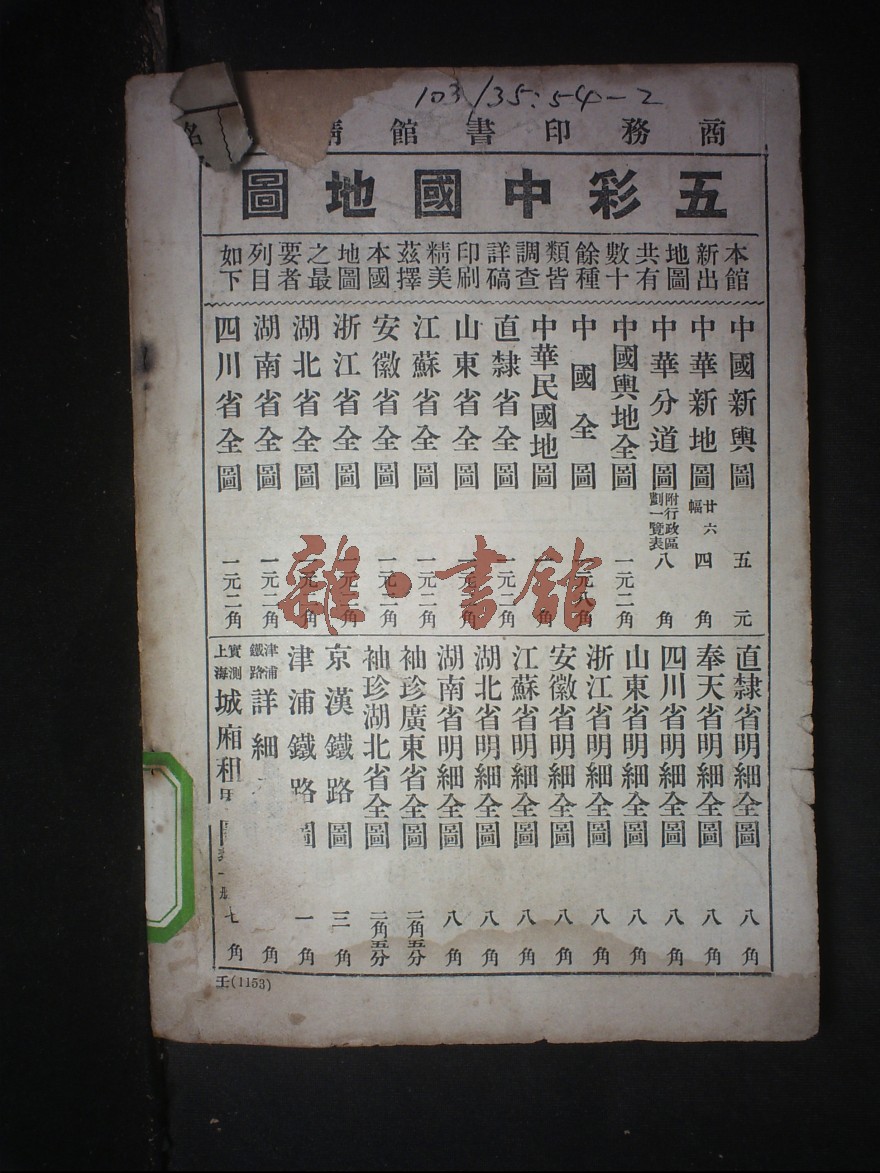 103/35:54-2
商務印書館精
名
五彩中國地圖
本館
新出
地圖
共有
數十
餘種
類皆
調查
詳稿
印刷
精美
茲擇
本國
地圖
之最
要者
列目
如下
中國新輿圖 五元
中華新地圖 廿六幅 四角
中華分道圖 附行政區劃一覽表 八角
中國輿地全圖 一元二角
中國全圖 一元八角
中華民國地圖 角
直隸省全圖 一元二角
山東省全圖 一元二角
江蘇省全圖 一元二角
安徽省全圖 一元二角
浙江省全圖 一元二角
湖北省全圖 一元二角
湖南省全圖 一元二角
四川省全圖 一元二角
直隸省明細全圖 八角
奉天省明細全圖 八角
四川省明細全圖 八角
山東省明細全圖 八角
浙江省明細全圖 八角
安徽省明細全圖 八角
江蘇省明細全圖 八角
湖北省明細全圖 八角
湖南省明細全圖 八角
袖珍廣東省全圖 二角五分
袖珍湖北省全圖 二角五分
京漢鐵路圖 三角
津浦鐵路圖 一角
津浦鐵路詳細 角
實測上海城廂租 圖 七角
壬(1153)
雜·書館